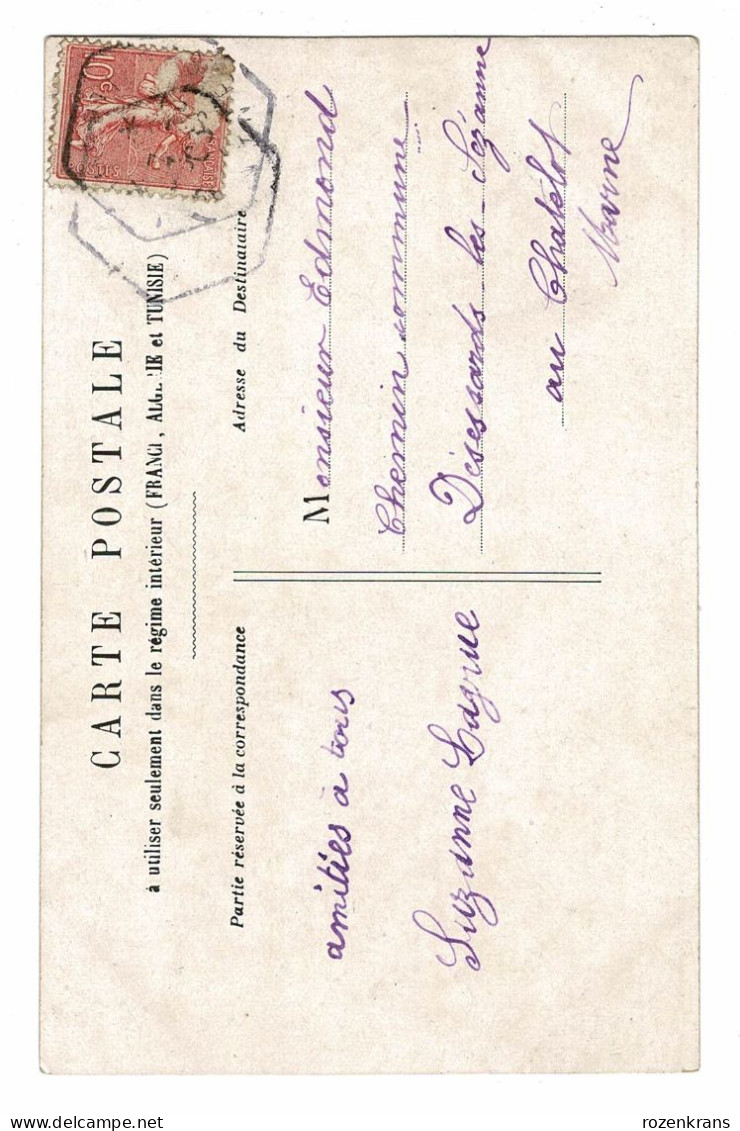 CARTE POSTALE
à utiliser seulement dans le régime intérieur (FRANCE, ALGÉRIE et TUNISIE)
Partie réservée à la correspondance
amitiés à tous
Suzanne Lagrue
Adresse du Destinataire
Monsieur Edmond
Chemin commune
Désessards les Sézanne
au Chatelot
Marne
10c
POSTES
FRANÇAISE
rozenkrans